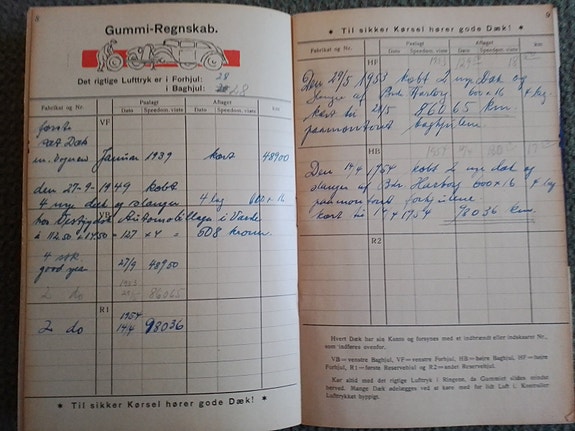 8
Gummi-Regnskab.
Det rigtige Lufttryk er i Forhjul: 28
i Baghjul: 28
Fabrikat og Nr.
Paalagt
Dato Speedom. viste
Aftaget
Dato Speedom. viste
VF
første
sæt Dæk
Januar 1939 kørt 48900
den 27-9-1949 købt
4 nye dæk og slanger 4 lag 600 x 16
hos Vestjydsk Automobillager i Varde
VB
á 112.50 + 14.50 = 127 x 4 = 508 kroner.
4 stk
good year 27/9 48900
2 do 86065
R1
1954
2 do 19/4 98036
* Til sikker Kørsel hører gode Dæk! *
9
* Til sikker Kørsel hører gode Dæk! *
Fabrikat og Nr.
Paalagt
Dato Speedom. viste
Aftaget
Dato Speedom. viste
HF
Den 29/5 1953 købt 2 nye Dæk og
Slanger af Brdr Harborg 600 x 16 4 lag
kørt til 29/5 86065 km.
paamonteret baghjulene
HB
Den 19/4 1954 købt 2 nye dæk og
slanger af Brdr. Harborg 600 x 16 4 lag
paamonteret forhjulene
kørt til 19/4 1954 98036 km.
R2
Hvert Dæk har sin Konto og forsynes med et indbrændt eller indskaaret Nr.,
som indføres ovenfor.
VB = venstre Baghjul, VF = venstre Forhjul, HB = højre Baghjul, HF = højre
Forhjul, R1 = første Reservehjul og R2 = andet Reservehjul.
Kør altid med det rigtige Lufttryk i Ringene, da Gummiet slides mindre
herved. Mange Dæk ødelægges ved at køre med for lidt Luft i. Kontroller
Lufttrykket hyppigt.